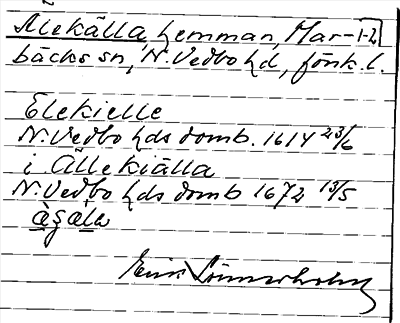 Alekälla, hemman, Mar- 1-2
bäcks sn, N. Vedbo hd, Jönk. l.
Elekielle
N. Vedbo hds domb. 1614 23/6
i Ållekiälla
N. Vedbo hds domb 1672 13/5
Erik